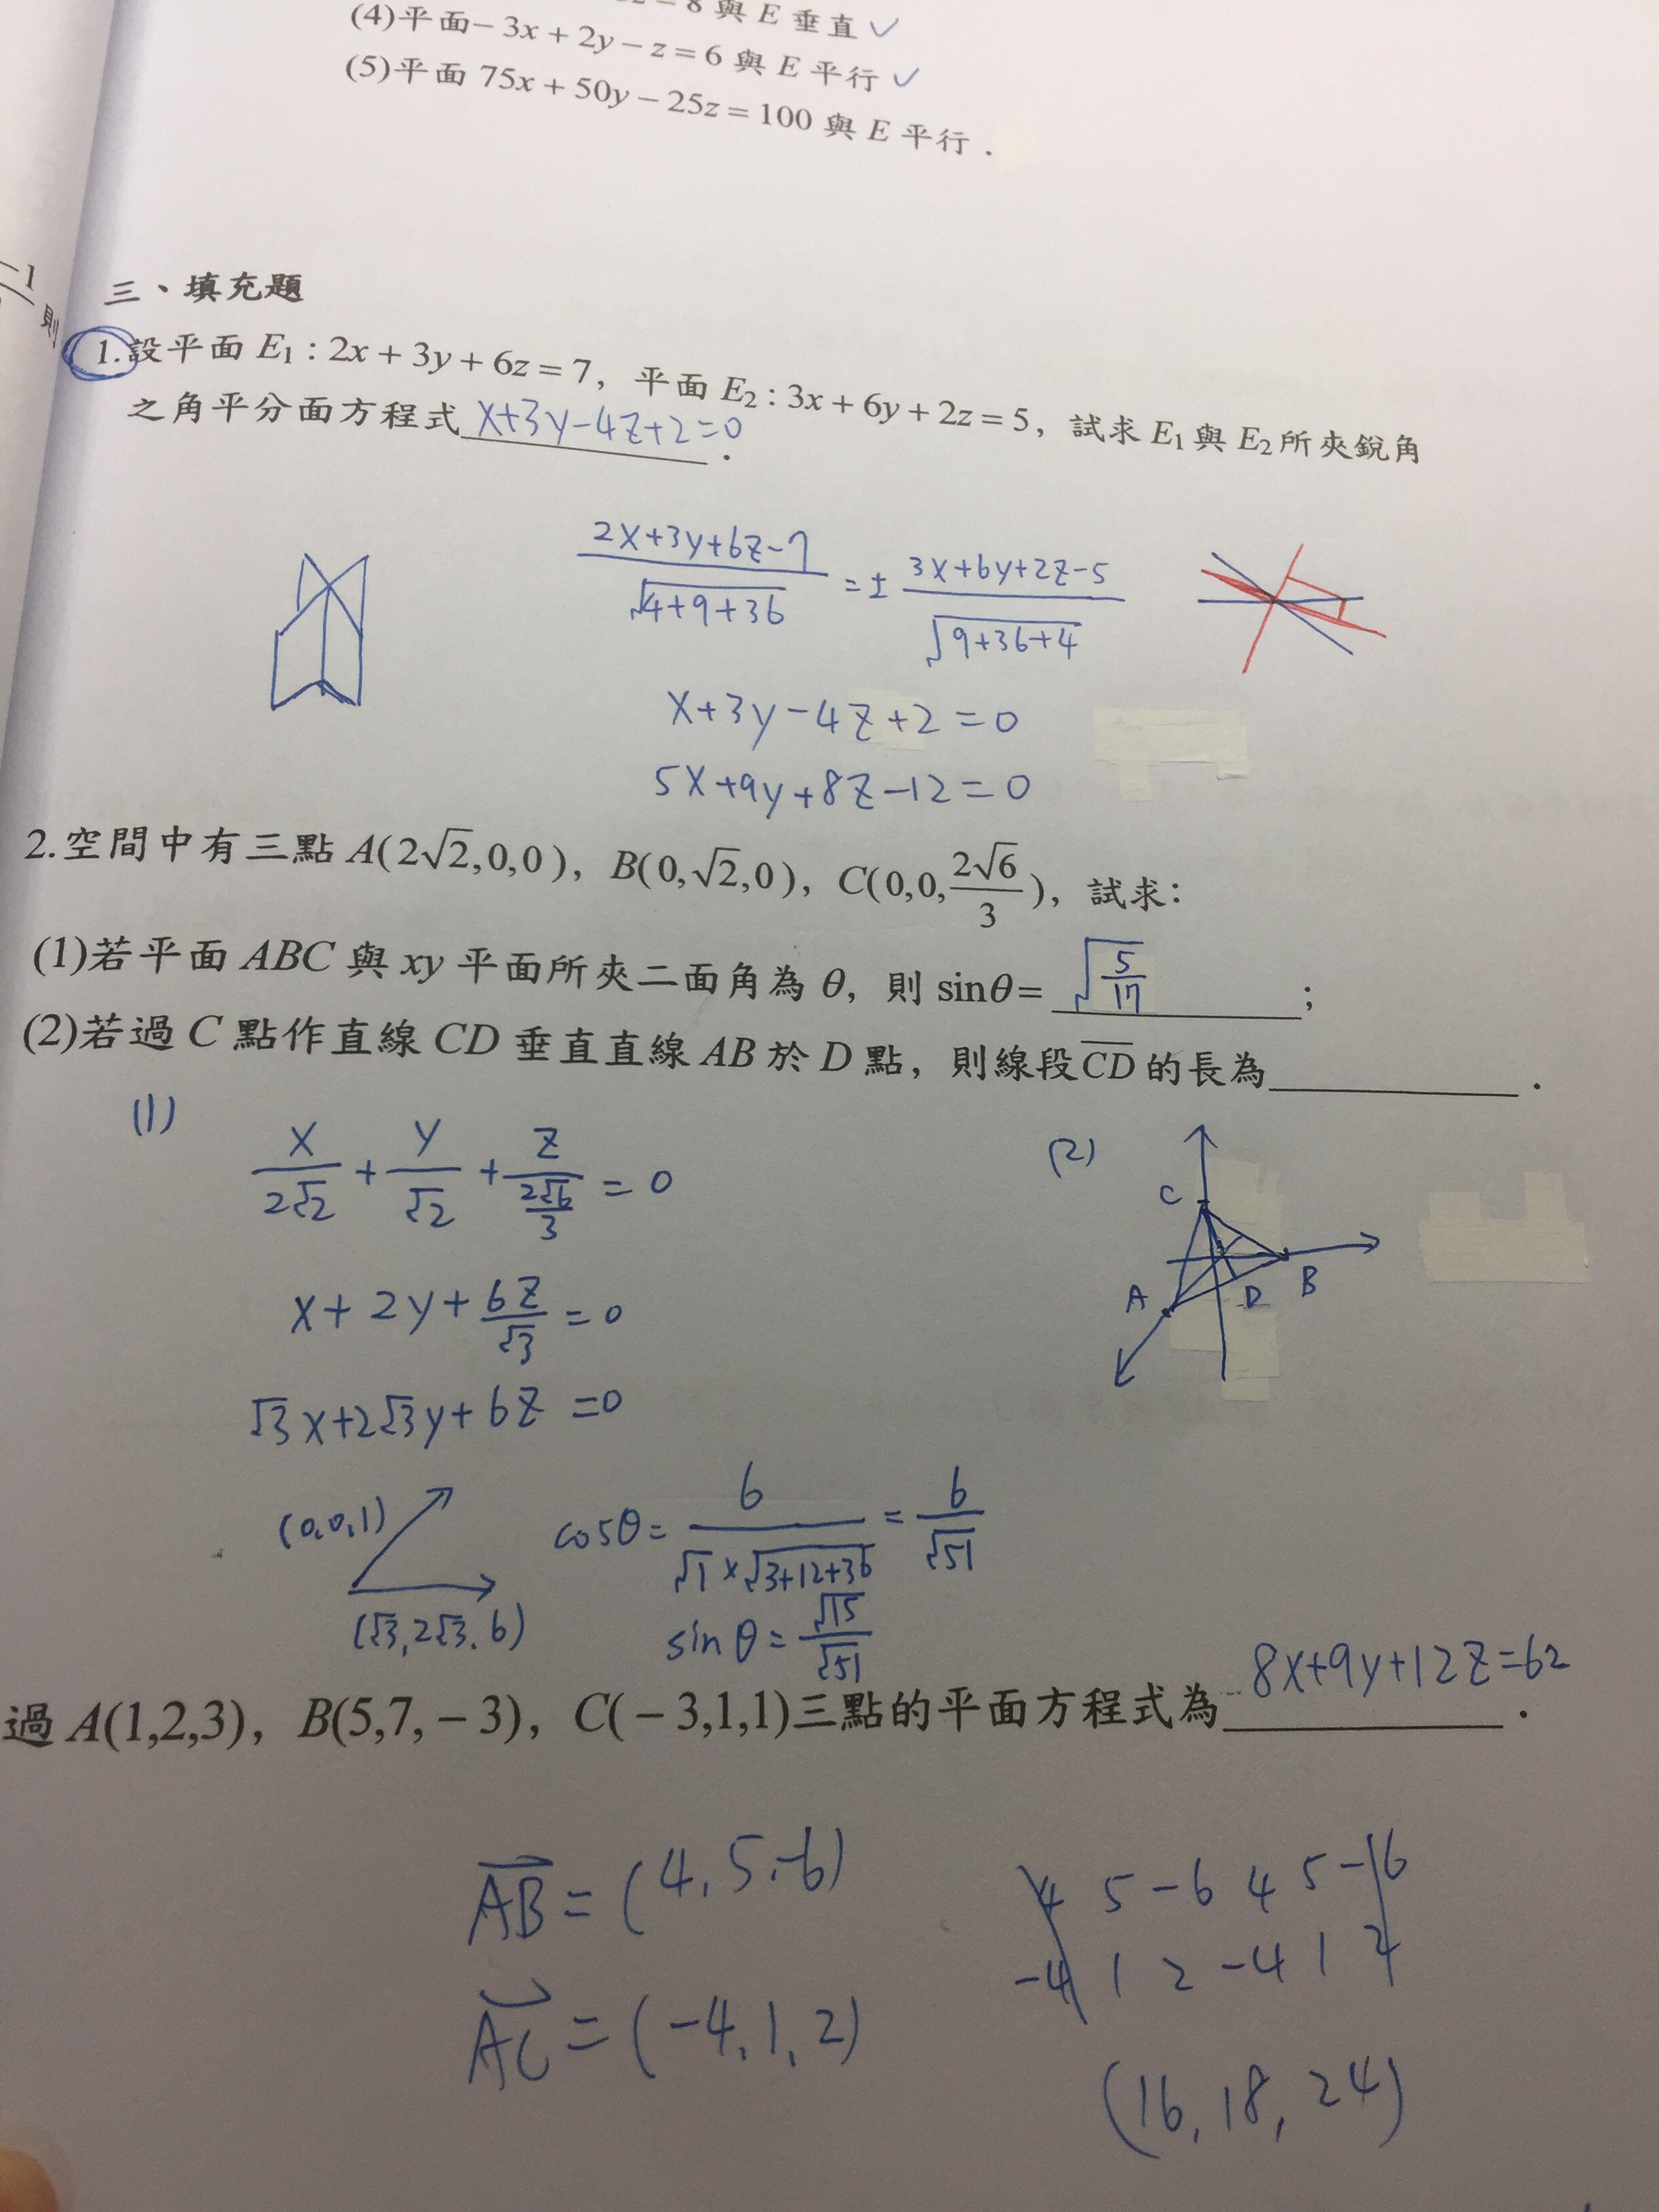 = 8 與 E 垂直 ✓
(4)平面−3x + 2y − z = 6 與 E 平行 ✓
(5)平面 75x + 50y − 25z = 100 與 E 平行．
−1
則
三、填充題
1.設平面 E₁ : 2x + 3y + 6z = 7，平面 E₂ : 3x + 6y + 2z = 5，試求 E₁ 與 E₂ 所夾銳角
之角平分面方程式 x+3y−4z+2=0 ．
(2x+3y+6z−7)/√(4+9+36) = ± (3x+6y+2z−5)/√(9+36+4)
x+3y−4z+2=0
5x+9y+8z−12=0
2.空間中有三點 A(2√2,0,0)，B(0,√2,0)，C(0,0,2√6/3)，試求：
(1)若平面 ABC 與 xy 平面所夾二面角為 θ，則 sinθ= √(5/17) ；
(2)若過 C 點作直線 CD 垂直直線 AB 於 D 點，則線段 C̅D̅ 的長為______．
(1)
x/(2√2) + y/√2 + z/(2√6/3) = 0
x+2y+6z/√3 = 0
√3x+2√3y+6z =0
(0,0,1)
(√3,2√3,6)
cosθ= 6/(√1×√(3+12+36)) = 6/√51
sinθ= √15/√51
(2)
C
A
D
B
過 A(1,2,3)，B(5,7,−3)，C(−3,1,1)三點的平面方程式為 8x+9y+12z=62 ．
AB⃗ = (4,5,−6)
AC⃗ = (−4,1,2)
4 5 −6 4 5 −6
−4 1 2 −4 1 2
(16, 18, 24)